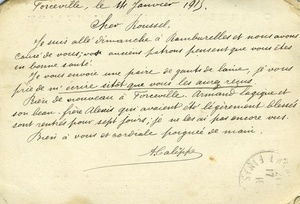 Forceville, le 14 Janvier 1915.
Cher Roussel,
Je suis allé dimanche à Ramburelles et nous avons
causé de vous; vos anciens patrons pensent que vous êtes
en bonne santé.
Je vous envoie une paire de gants de laine; je vous
prie de m'écrire sitôt que vous les aurez reçus.
Rien de nouveau à Forceville. Armand Lagique et
son beau-frère Alexis qui avaient été légèrement blessés
sont rentrés pour sept jours; je ne les ai pas encore vus.
Bien à vous et cordiale poignée de main.